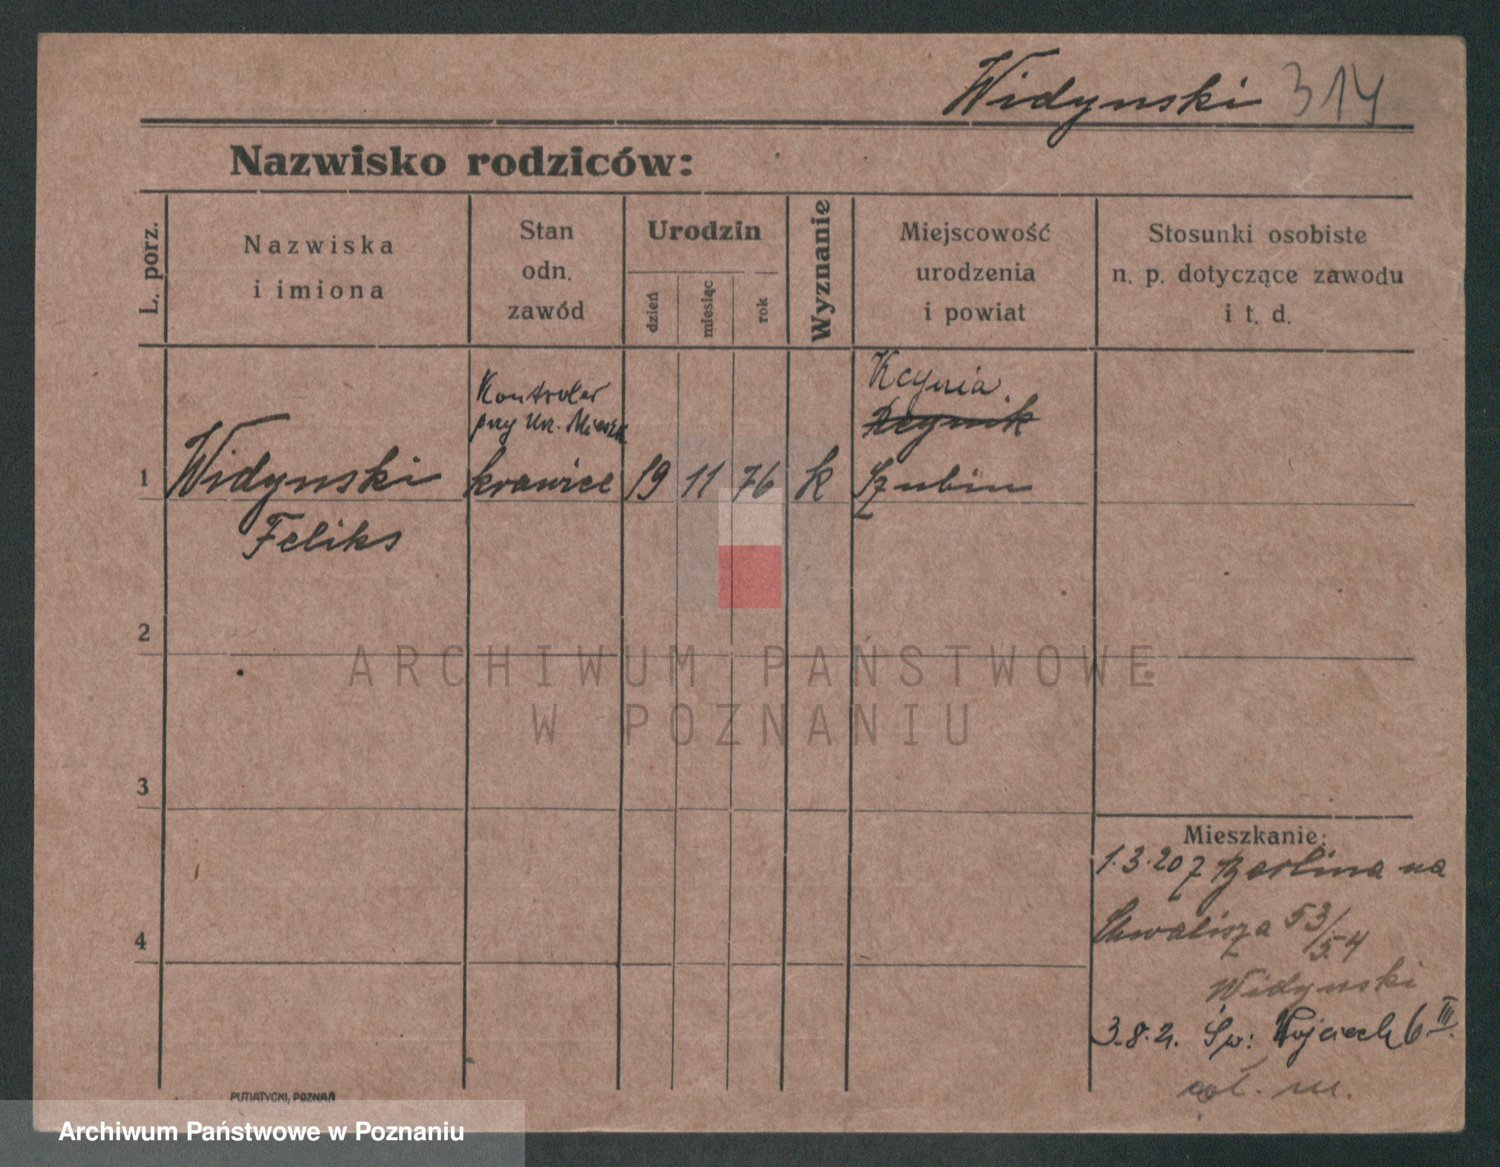 Widynski 314
Nazwisko rodziców:
L. porz.
Nazwiska
i imiona
Stan
odn.
zawód
Urodzin
dzień
miesiąc
rok
Wyznanie
Miejscowość
urodzenia
i powiat
Stosunki osobiste
n. p. dotyczące zawodu
i t. d.
Kontroler
przy Urz. Mieszk
Kcynia
1 Widynski krawiec 19 11 76 k Szubin
Feliks
2
3
4
ARCHIWUM PAŃSTWOWE
W POZNANIU
Mieszkanie:
1.3.20 z Berlina na
Chwalisza 53/54
Widynski
3.8.21. Św: Wojciech 6 III.
PUTIATYCKI, POZNAŃ
Archiwum Państwowe w Poznaniu